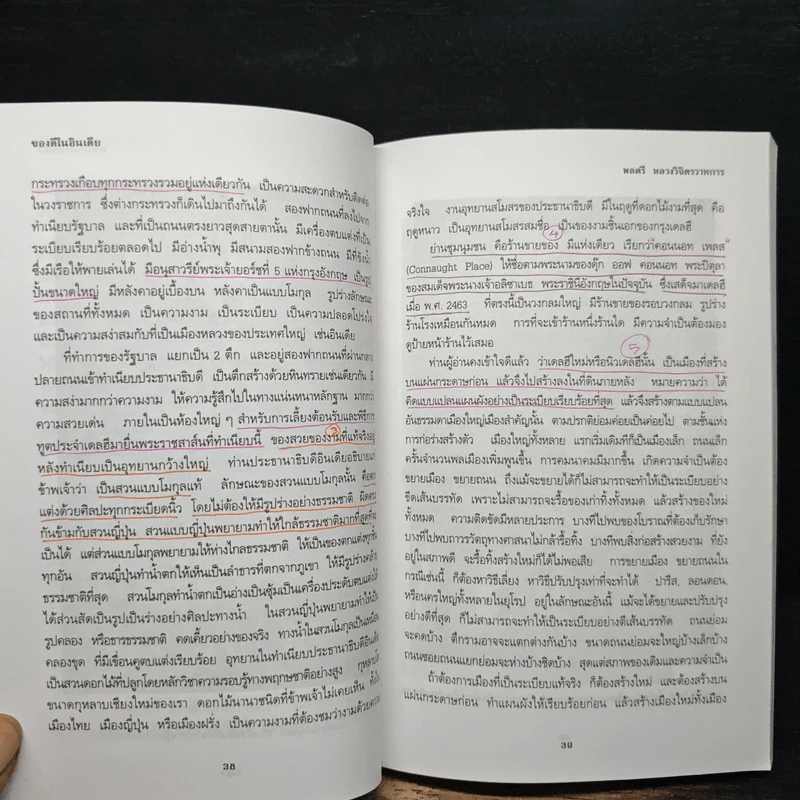 ของดีในอินเดีย
กระทรวงเกือบทุกกระทรวงรวมอยู่แห่งเดียวกัน เป็นความสะดวกสำหรับติดต่อ
ในวงราชการ ซึ่งต่างกระทรวงก็เดินไปมาถึงกันได้ สองฟากถนนที่ลงไปจาก
ทำเนียบรัฐบาล และที่เป็นถนนตรงยาวสุดสายตานั้น มีเครื่องตบแต่งที่เป็น
ระเบียบเรียบร้อยตลอดไป มีอ่างน้ำพุ มีสนามสองฟากข้างถนน มีที่ขังน้ำ
ซึ่งมีเรือให้พายเล่นได้ มีอนุสาวรีย์พระเจ้ายอร์ชที่ 5 แห่งกรุงอังกฤษ เป็นรูป
ปั้นขนาดใหญ่ มีหลังคาอยู่เบื้องบน หลังคาเป็นแบบโมกุล รูปร่างลักษณะ
ของสถานที่ทั้งหมด เป็นความงาม เป็นระเบียบ เป็นความปลอดโปร่งใจ
และเป็นความสง่าสมกับที่เป็นเมืองหลวงของประเทศใหญ่ เช่นอินเดีย
ที่ทำการของรัฐบาล แยกเป็น 2 ตึก และอยู่สองฟากถนนที่ผ่านกลาง
ปลายถนนเข้าทำเนียบประธานาธิบดี เป็นตึกสร้างด้วยหินทรายเช่นเดียวกัน มี
ความสง่ามากกว่าความงาม ให้ความรู้สึกไปในทางแน่นหนาหลักฐาน มากกว่า
ความสวยเด่น ภายในเป็นห้องใหญ่ ๆ สำหรับการเลี้ยงต้อนรับและพิธีการ
ทูตประจำเดลฮีมายื่นพระราชสาส์นที่ทำเนียบนี้ ของสวยของงามที่แท้จริงอยู่
3
หลังทำเนียบเป็นอุทยานกว้างใหญ่ ท่านประธานาธิบดีอินเดียอธิบายแก่
ข้าพเจ้าว่า เป็นสวนแบบโมกุลแท้ ลักษณะของสวนแบบโมกุลนั้น คือตก
แต่งด้วยศิลปะทุกกระเบียดนิ้ว โดยไม่ต้องให้มีรูปร่างอย่างธรรมชาติ ผิดตรง
กันข้ามกับสวนญี่ปุ่น สวนแบบญี่ปุ่นพยายามทำให้ใกล้ธรรมชาติมากที่สุดที่จะ
เป็นได้ แต่ส่วนแบบโมกุลพยายามให้ห่างไกลธรรมชาติ ให้เป็นของตกแต่งทุกชิ้น
ทุกอัน สวนญี่ปุ่นทำน้ำตกให้เห็นเป็นลำธารที่ตกจากภูเขา ให้มีรูปร่างคล้าย
ธรรมชาติที่สุด สวนโมกุลทำน้ำตกเป็นอ่างเป็นซุ้มเป็นเครื่องประดับตบแต่งให้
ได้ส่วนสัดเป็นรูปเป็นร่างอย่างศิลปะทางน้ำ ในสวนญี่ปุ่นพยายามทำให้เป็น
รูปคลอง หรือธารธรรมชาติ คดเคี้ยวอย่างของจริง ทางน้ำในสวนโมกุลเป็นเหมือน
คลองขุด ที่มีเขื่อนคูตบแต่งเรียบร้อย อุทยานในทำเนียบประธานาธิบดีอินเดีย
เป็นสวนดอกไม้ที่ปลูกโดยหลักวิชาความรอบรู้ทางพฤกษชาติอย่างสูง กุหลาบโต
ขนาดกุหลาบเชียงใหม่ของเรา ดอกไม้นานาชนิดที่ข้าพเจ้าไม่เคยเห็น ทั้งใน
เมืองไทย เมืองญี่ปุ่น หรือเมืองฝรั่ง เป็นความงามที่ต้องชมว่างามด้วยความ
38
พลตรี หลวงวิจิตรวาทการ
จริงใจ งานอุทยานสโมสรของประธานาธิบดี มีในฤดูที่ดอกไม้งามที่สุด คือ
ฤดูหนาว เป็นอุทยานสโมสรสมชื่อ เป็นของงามชิ้นเอกของกรุงเดลฮี
4
ย่านชุมนุมชน คือร้านขายของ มีแห่งเดียว เรียกว่าคอนนอท เพลส
(Connaught Place) ให้ชื่อตามพระนามของดุ๊ก ออฟ คอนนอท พระปิตุลา
ของสมเด็จพระนางเจ้าอลิซาเบธ พระราชินีอังกฤษในปัจจุบัน ซึ่งเสด็จมาเดลฮี
เมื่อ พ.ศ. 2463 ที่ตรงนี้เป็นวงกลมใหญ่ มีร้านขายของรอบวงกลม รูปร่าง
ร้านโรงเหมือนกันหมด การที่จะเข้าร้านหนึ่งร้านใด มีความจำเป็นต้องมอง
ดูป้ายหน้าร้านไว้เสมอ
5
ท่านผู้อ่านคงเข้าใจดีแล้ว ว่าเดลฮีใหม่หรือนิวเดลฮีนั้น เป็นเมืองที่สร้าง
บนแผ่นกระดาษก่อน แล้วจึงไปสร้างลงในที่ดินภายหลัง หมายความว่า ได้
คิดแบบแปลนแผนผังอย่างเป็นระเบียบเรียบร้อยที่สุด แล้วจึงสร้างตามแบบแปลน
อันธรรมดาเมืองใหญ่เมืองสำคัญนั้น ตามปรกติย่อมค่อยเป็นค่อยไป ตามชั้นแห่ง
การก่อร่างสร้างตัว เมืองใหญ่ทั้งหลาย แรกเริ่มเดิมทีก็เป็นเมืองเล็ก ถนนเล็ก
ครั้นจำนวนพลเมืองเพิ่มพูนขึ้น การคมนาคมมีมากขึ้น เกิดความจำเป็นต้อง
ขยายเมือง ขยายถนน ถึงแม้จะขยายได้ก็ไม่สามารถจะทำให้เป็นระเบียบอย่าง
ขีดเส้นบรรทัด เพราะไม่สามารถจะรื้อของเก่าทิ้งทั้งหมด แล้วสร้างของใหม่
ทั้งหมด ความติดขัดมีหลายประการ บางทีไปพบของโบราณที่ต้องเก็บรักษา
บางทีไปพบถาวรวัตถุทางศาสนาไม่กล้ารื้อทิ้ง บางทีพบสิ่งก่อสร้างสวยงาม ที่ยัง
อยู่ในสภาพดี จะรื้อทิ้งสร้างใหม่ก็ได้ไม่พอเสีย การขยายเมือง ขยายถนนใน
กรณีเช่นนี้ ก็ต้องหาวิธีเลี่ยง หาวิธีปรับปรุงเท่าที่จะทำได้ ปารีส, ลอนดอน,
หรือนครใหญ่ทั้งหลายในยุโรป อยู่ในลักษณะอันนี้ แม้จะได้ขยายและปรับปรุง
อย่างดีที่สุด ก็ไม่สามารถจะทำให้เป็นระเบียบอย่างตีเส้นบรรทัด ถนนย่อม
จะคดบ้าง ตึกรามอาจจะแตกต่างกันบ้าง ขนาดถนนย่อมจะใหญ่บ้างเล็กบ้าง
ถนนซอยถนนแยกย่อมจะห่างบ้างชิดบ้าง สุดแต่สภาพของเดิมและความจำเป็น
ถ้าต้องการเมืองที่เป็นระเบียบแท้จริง ก็ต้องสร้างใหม่ และต้องสร้างบน
แผ่นกระดาษก่อน ทำแผนผังให้เรียบร้อยก่อน แล้วสร้างเมืองใหม่ทั้งเมือง
39